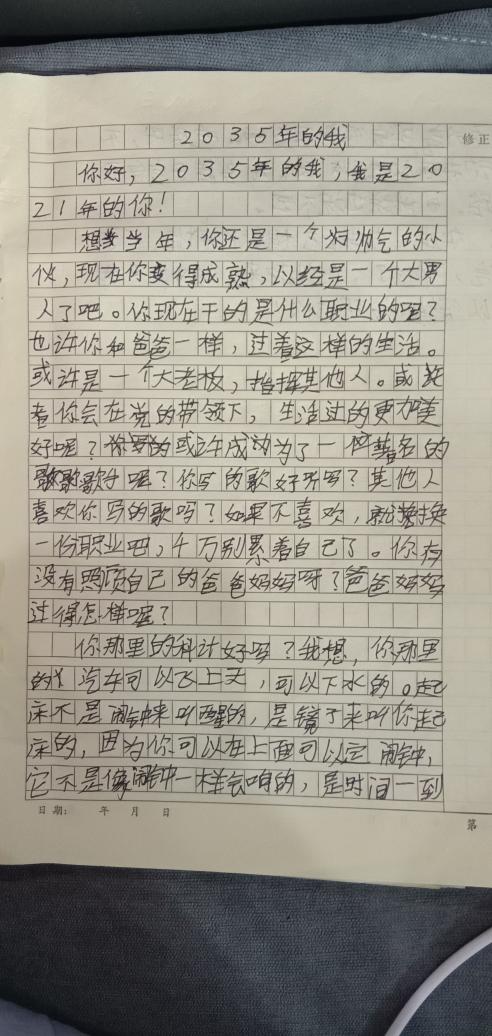 2035年的我
修正
你好，2035年的我，我是20
21年的你！
想当年，你还是一个帅气的小
伙，现在你变得成熟，以经是一个大男
人了吧。你现在干的是什么职业的呢？
也许你和爸爸一样，过着这样的生活。
或许是一个大老板，指挥其他人。或
者你会在党的带领下，生活过的更加美
好呢？或许成功为了一位著名的
歌手呢？你写的歌好听吗？其他人
喜欢你写的歌吗？如果不喜欢，就换
一份职业吧，千万别累着自己了。你有
没有照顾自己的爸爸妈妈呀？爸爸妈妈
过得怎样呢？
你那里的科计好吗？我想，你那里
的汽车可以飞上天，可以下水的。起
床不是闹钟来叫醒的，是镜子来叫你起
床的，因为你可以在上面可以定闹钟，
它不是像闹钟一样会响的，是时间一到
日期： 年 月 日
第